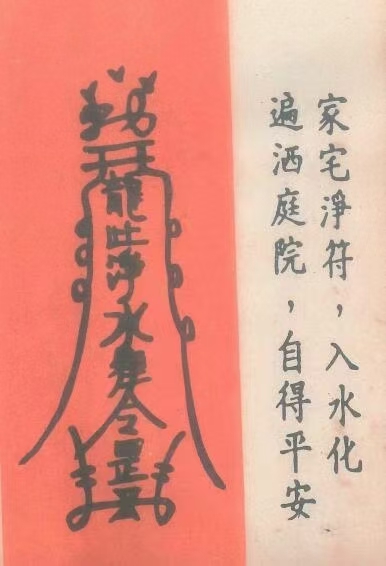 家宅淨符，入水化
遍洒庭院，自得平安
龍吐淨水奉令